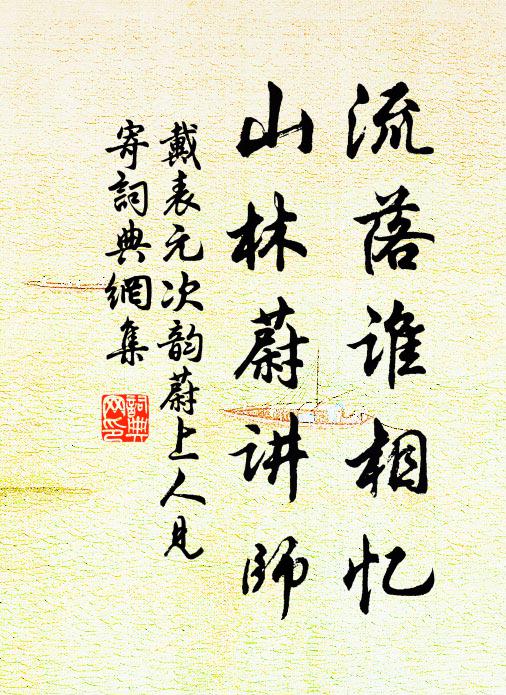 流落谁相忆
山林蔚讲师
戴表元次韵蔚上人见
寄詞典網集
詞典
网印